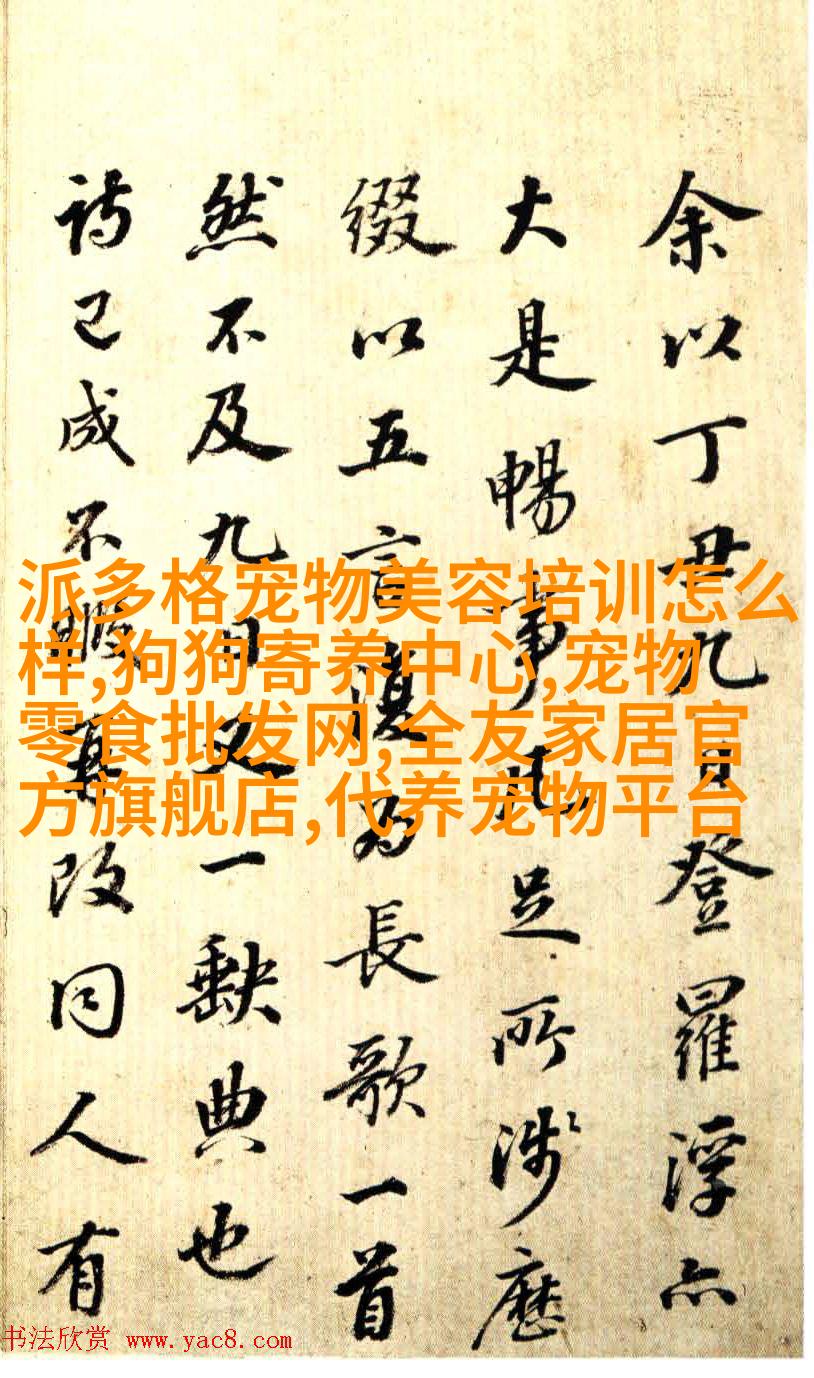 余以丁丑九日登羅浮亦
大是暢事凡足所涉歷
綴以五言復為長歌一首
然不及九日又一缺典也
詩已成不暇再改同人有
派多格宠物美容培训怎么
样,狗狗寄养中心,宠物
零食批发网,全友家居官
方旗舰店,代养宠物平台
书法欣赏 www.yac8.com